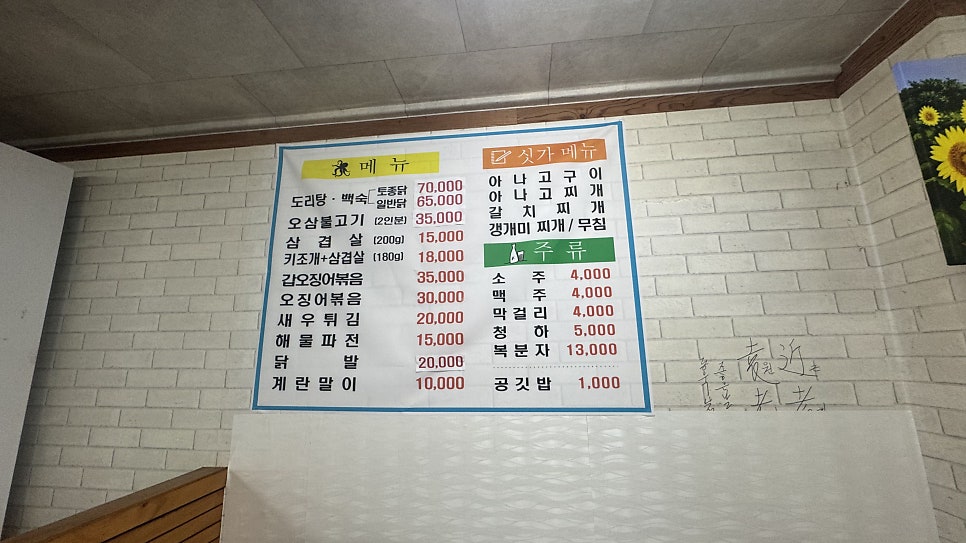 메 뉴
도리탕 · 백숙 토종닭 70,000
일반닭 65,000
오삼불고기 (2인분) 35,000
삼 겹 살 (200g) 15,000
키조개+삼겹살 (180g) 18,000
갑오징어볶음 35,000
오징어볶음 30,000
새우튀김 20,000
해물파전 15,000
닭 발 20,000
계란말이 10,000
싯가 메뉴
아 나 고 구 이
아 나 고 찌 개
갈 치 찌 개
갱개미 찌개 / 무침
주 류
소 주 4,000
맥 주 4,000
막걸리 4,000
청 하 5,000
복분자 13,000
공깃밥 1,000
遠 원 近
老 老